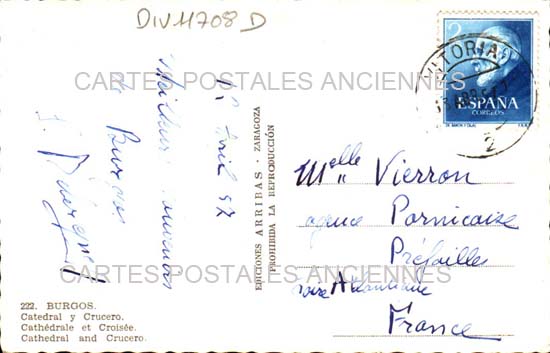 DIV 11708 D
CARTES POSTALES ANCIENNES
2
VITORIA
ESPAÑA
CORREOS
2
Avril 57
Meilleurs souvenirs
de Burgos
EDICIONES ARRIBAS - ZARAGOZA
PROHIBIDA LA REPRODUCCIÓN
Melle Vierron
agence Pornicaise
Préfailles
Loire Atlantique
France
CARTES POSTALES ANCIENNES
222. BURGOS.
Catedral y Crucero.
Cathédrale et Croisée.
Cathedral and Crucero.